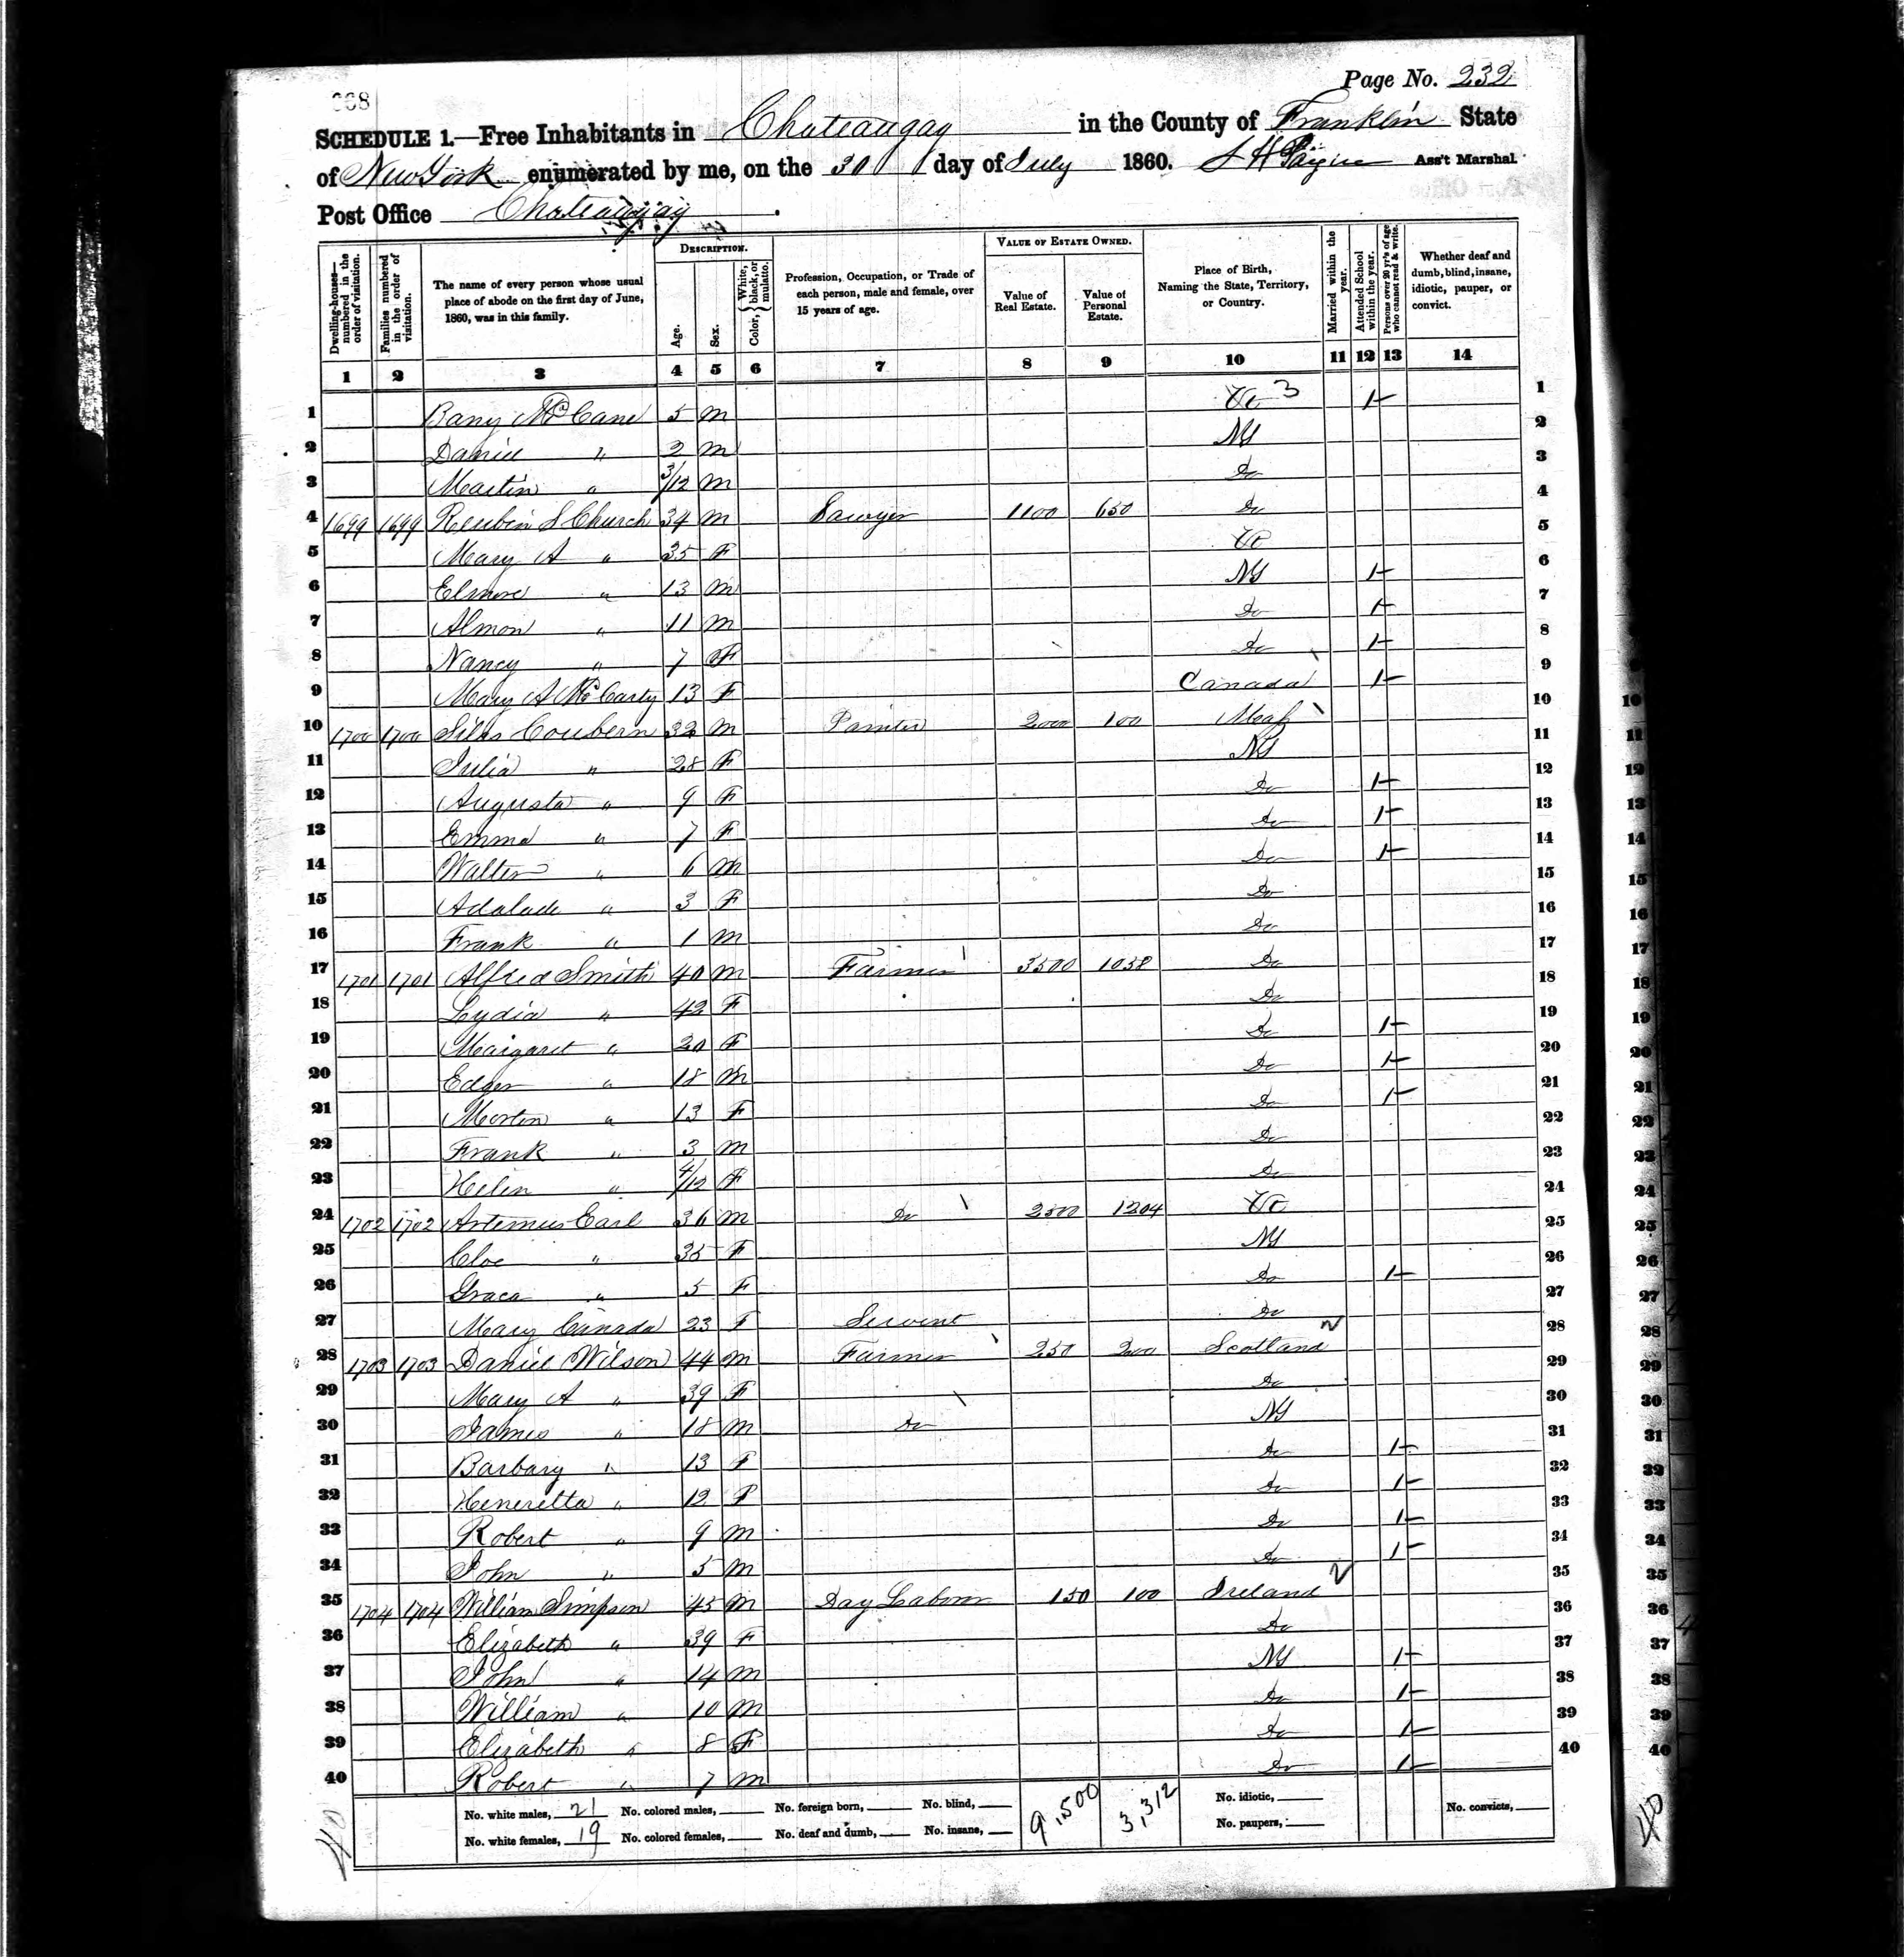 Page No. 232
368
SCHEDULE 1.—Free Inhabitants in Chateaugay in the County of Franklin State
of New York enumerated by me, on the 30 day of July 1860. S H Paine Ass't Marshal.
Post Office Chateaugay.
Dwelling-houses—numbered in the order of visitation.
Families numbered in the order of visitation.
The name of every person whose usual place of abode on the first day of June, 1860, was in this family.
DESCRIPTION.
Age.
Sex.
Color, { White, black, or mulatto.
Profession, Occupation, or Trade of each person, male and female, over 15 years of age.
VALUE OF ESTATE OWNED.
Value of Real Estate.
Value of Personal Estate.
Place of Birth, Naming the State, Territory, or Country.
Married within the year.
Attended School within the year.
Persons over 20 yr's of age who cannot read & write.
Whether deaf and dumb, blind, insane, idiotic, pauper, or convict.
1 2 3 4 5 6 7 8 9 10 11 12 13 14
1 Bany McCane 5 m Vt 3 1 1
2 Daniel " 2 m NY 2
3 Martin " 3/12 m Do 3
4 1699 1699 Reubin S Church 34 m Sawyer 1100 650 Do 4
5 Mary A " 35 F Vt 5
6 Elmore " 13 m NY 1 6
7 Almon " 11 m Do 1 7
8 Nancy " 7 F Do 1 8
9 Mary A McCarty 13 F Canada 1 9
10 1700 1700 Silas Coubern 32 m Painter 2000 100 Mass 10
11 Julia " 28 F NY 11
12 Augusta " 9 F Do 1 12
13 Emma " 7 F Do 1 13
14 Walter " 6 m Do 1 14
15 Adalade " 3 F Do 15
16 Frank " 1 m Do 16
17 1701 1701 Alfred Smith 40 m Farmer 3500 1058 Do 17
18 Lydia " 42 F Do 18
19 Margaret " 20 F Do 1 19
20 Edger " 18 m Do 1 20
21 Morten " 13 F Do 1 21
22 Frank " 3 m Do 22
23 Helen " 4/12 F Do 23
24 1702 1702 Artemus Earl 36 m Do 2500 1204 Vt 24
25 Cloe " 35 F NY 25
26 Grace " 5 F Do 1 26
27 Mary Canada 23 F Servent Do 27
28 1703 1703 Daniel Wilson 44 m Farmer 250 200 Scotland 28
29 Mary A " 39 F Do 29
30 James " 18 m Do NY 30
31 Barbary " 13 F Do 1 31
32 Heneretta " 12 F Do 1 32
33 Robert " 9 m Do 1 33
34 John " 5 m Do 1 34
35 1704 1704 William Simpson 45 m Day Laborer 150 100 Ireland 35
36 Elizabeth " 39 F Do 36
37 John " 14 m NY 1 37
38 William " 10 m Do 1 38
39 Elizabeth " 8 F Do 1 39
40 Robert " 7 m Do 1 40
No. white males, 21 No. colored males, No. foreign born, No. blind, 9,500 3,312 No. idiotic, No. convicts,
No. white females, 19 No. colored females, No. deaf and dumb, No. insane, No. paupers,
40
40